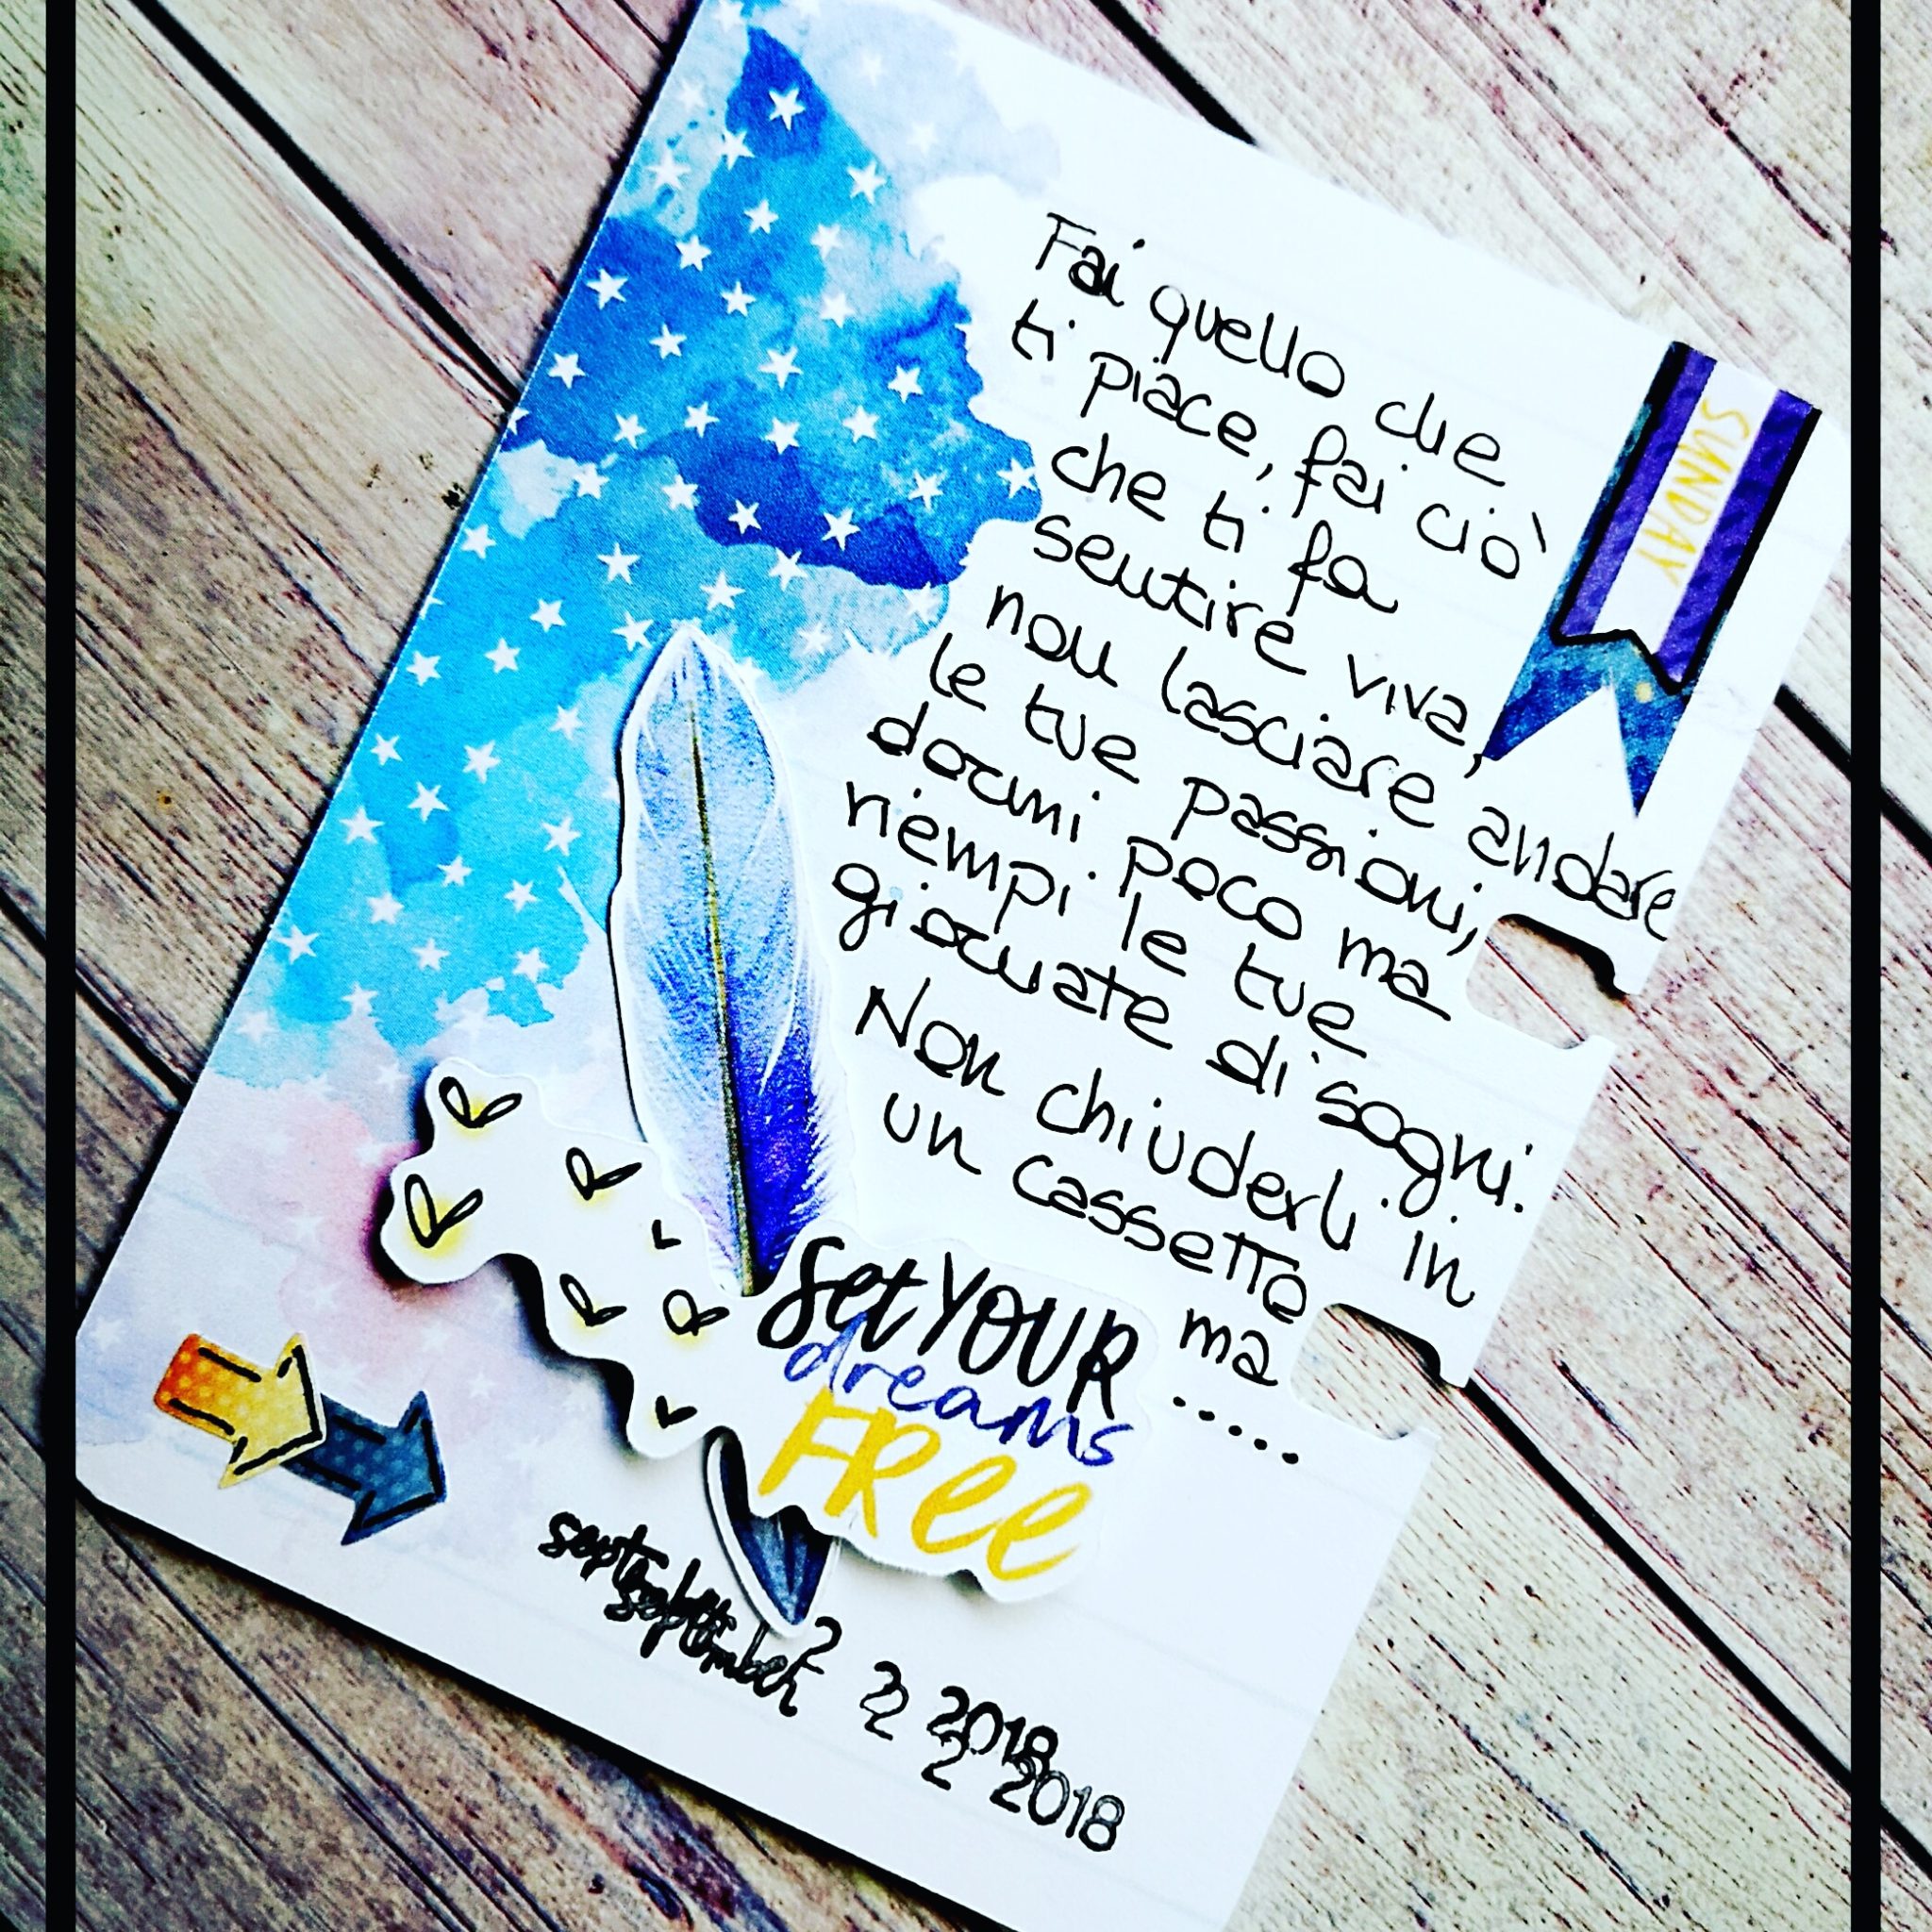 Fai quello che
ti piace, fai ciò
che ti fa
sentire viva,
non lasciare andare
le tue passioni,
dormi poco ma
riempi le tue
giornate di sogni.
Non chiuderli in
un cassetto
ma
.....
SUNDAY
Set YOUR
dreams
FREE
september 2 2 2018
september 2 2018